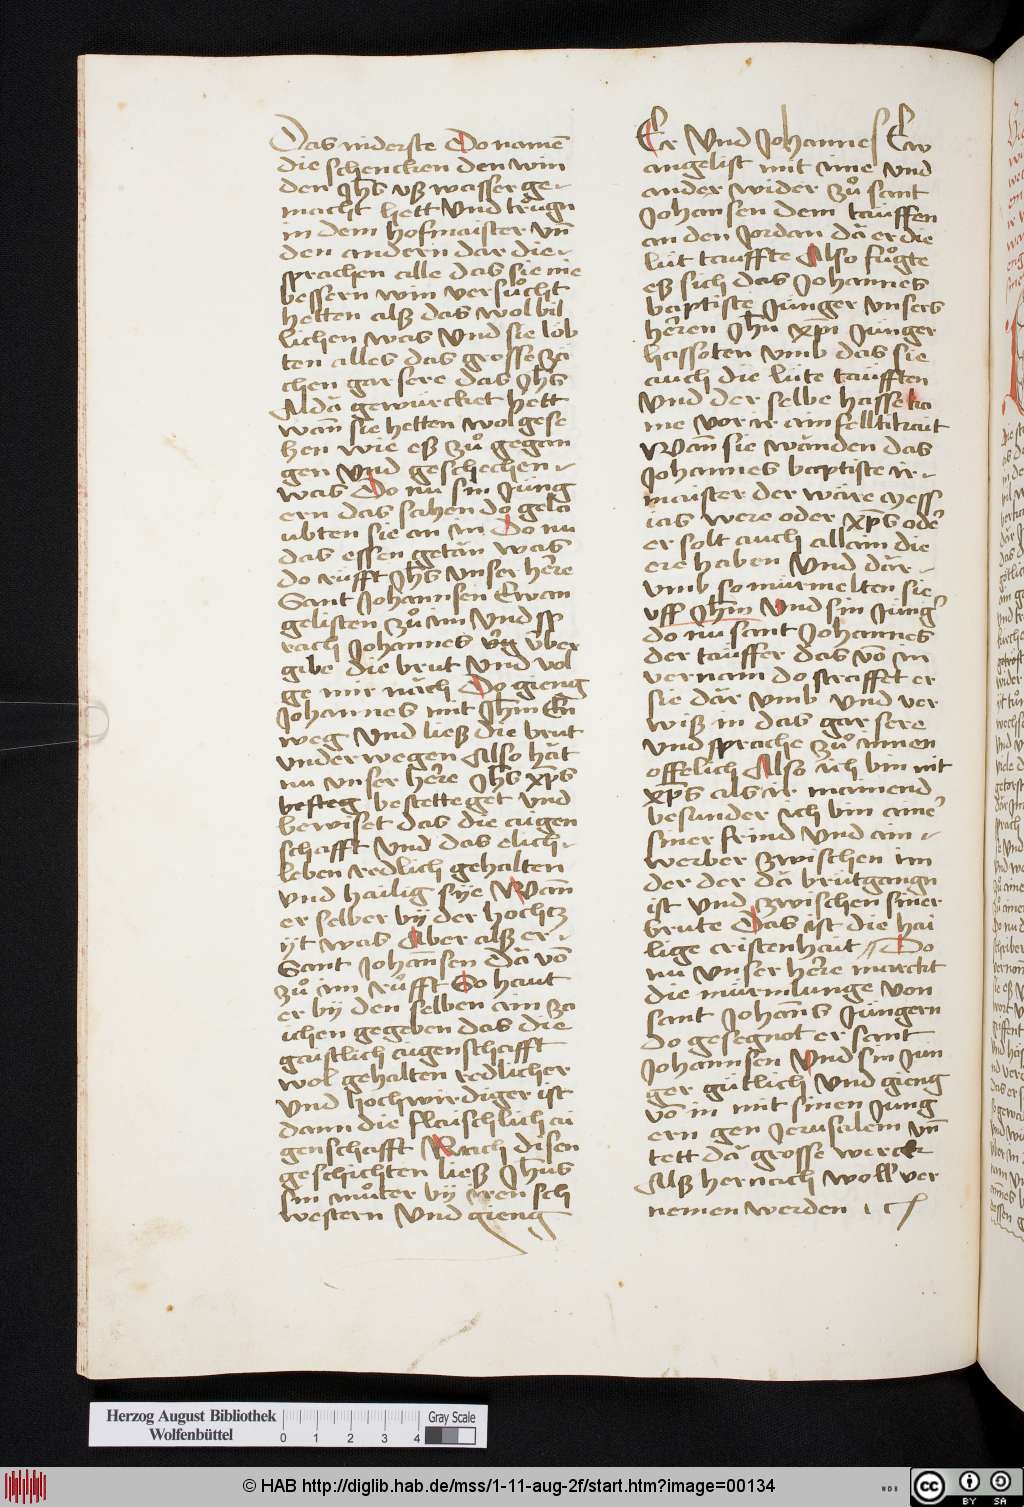 Das inderste Do namē
die schencken den win
den Jhs̄ vß wasser ge-
macht hett Vnd trůgn
in dem hofmaister vn̄
den andern dar die-
sprachen alle das sie nie
bessern win versůcht
hetten alß das wol bil
lichen was Vnd sie lob
ten alles das grosse zai
chen gar sere das Jhs̄
Alda gewürcket hett
wān sie hetten wol gese
hen wie eß zů gegan
gen Vnd geschechen-
was Do nu sin Jüng
ern das sahen do gelo
ubten sie an in Do nu
das essen getän was
do růfft Jhs̄ vnser hēre
Sant Johannsen Ewan
gelisten zů im Vnd sp
rach Johannes über
gibe die brut Vnd vol
ge mir näch Do gieng
Johannes mit Jhm̄ En
weg Vnd ließ die brut
vnder wegen Also hät
nu vnser hēre Jhs̄ xp̄s
besteg bestetteget vnd
bewiset das die augen
schafft Vnd das elich-
leben redlich gehalten
vnd hailig sÿe Wān
er selber bÿ der hochtz
ÿt was Aber alß er-
Sant Johānsen dä vō
zů im růfft So haut
er bÿ den selben ain zai
ichen gegeben das die
gaistlich aigenschafft
wol gehalten redlicher
vnd hochwirdiger ist
dann die flaischlich ai
genschafft Nach disen
geschichten ließ Jhūs
sin můter bÿ iren sch
western Vnd gieng
Er Vnd Johannes Ew
angelist mit ime vnd
ander wider zů sant
Johansen dem täuffen
an den Jordan dä er die
lüt tauffte Also fůgte
eß sich das Johannes
baptiste Jünger vnsers
hēren Jhū xp̄i Jünger
hassoten vmb das sie
auch die lüte täufften
Vnd der selbe hasse ka
me vor ir ainfelltikait
Wān sie wänden das
Johannes baptiste ir-
maister der wäre mess
ias were oder xp̄s odē
er solt auch allain die
ere haben Vnd där-
vmb so mürmelten sie
vff Jhm̄ Vnd sin Jüng'
do nu sant Johannes
der täuffer das vō in
vernam do straffet er
sie där vmb vnd ver
wiß in das gar sere
vnd sprache zů innen
offelich Also ich bin nit
xp̄s als ir mainend
besunder ich bin aine'
siner frind Vnd ain-
werber zwischen im
der der dä brütgaign
ist vnd zwischen siner
brute Das ist die hai
lige cristenhait Do
nu vnser hēre marckt
die mürmlunge von
sant Johāns Jüngern
do gesegnot er sant
Johannsen Vnd sin Jün
ger gütlich Vnd gieng
vō in mit sinen Jung
ern gen Jerusalem vn̄
tett dä grosse werck
Alß hernach woll ver
nemen werden
Herzog August Bibliothek
Wolfenbüttel
0 1 2 3 4
Gray Scale
© HAB http://diglib.hab.de/mss/1-11-aug-2f/start.htm?image=00134
WDB
cc BY SA